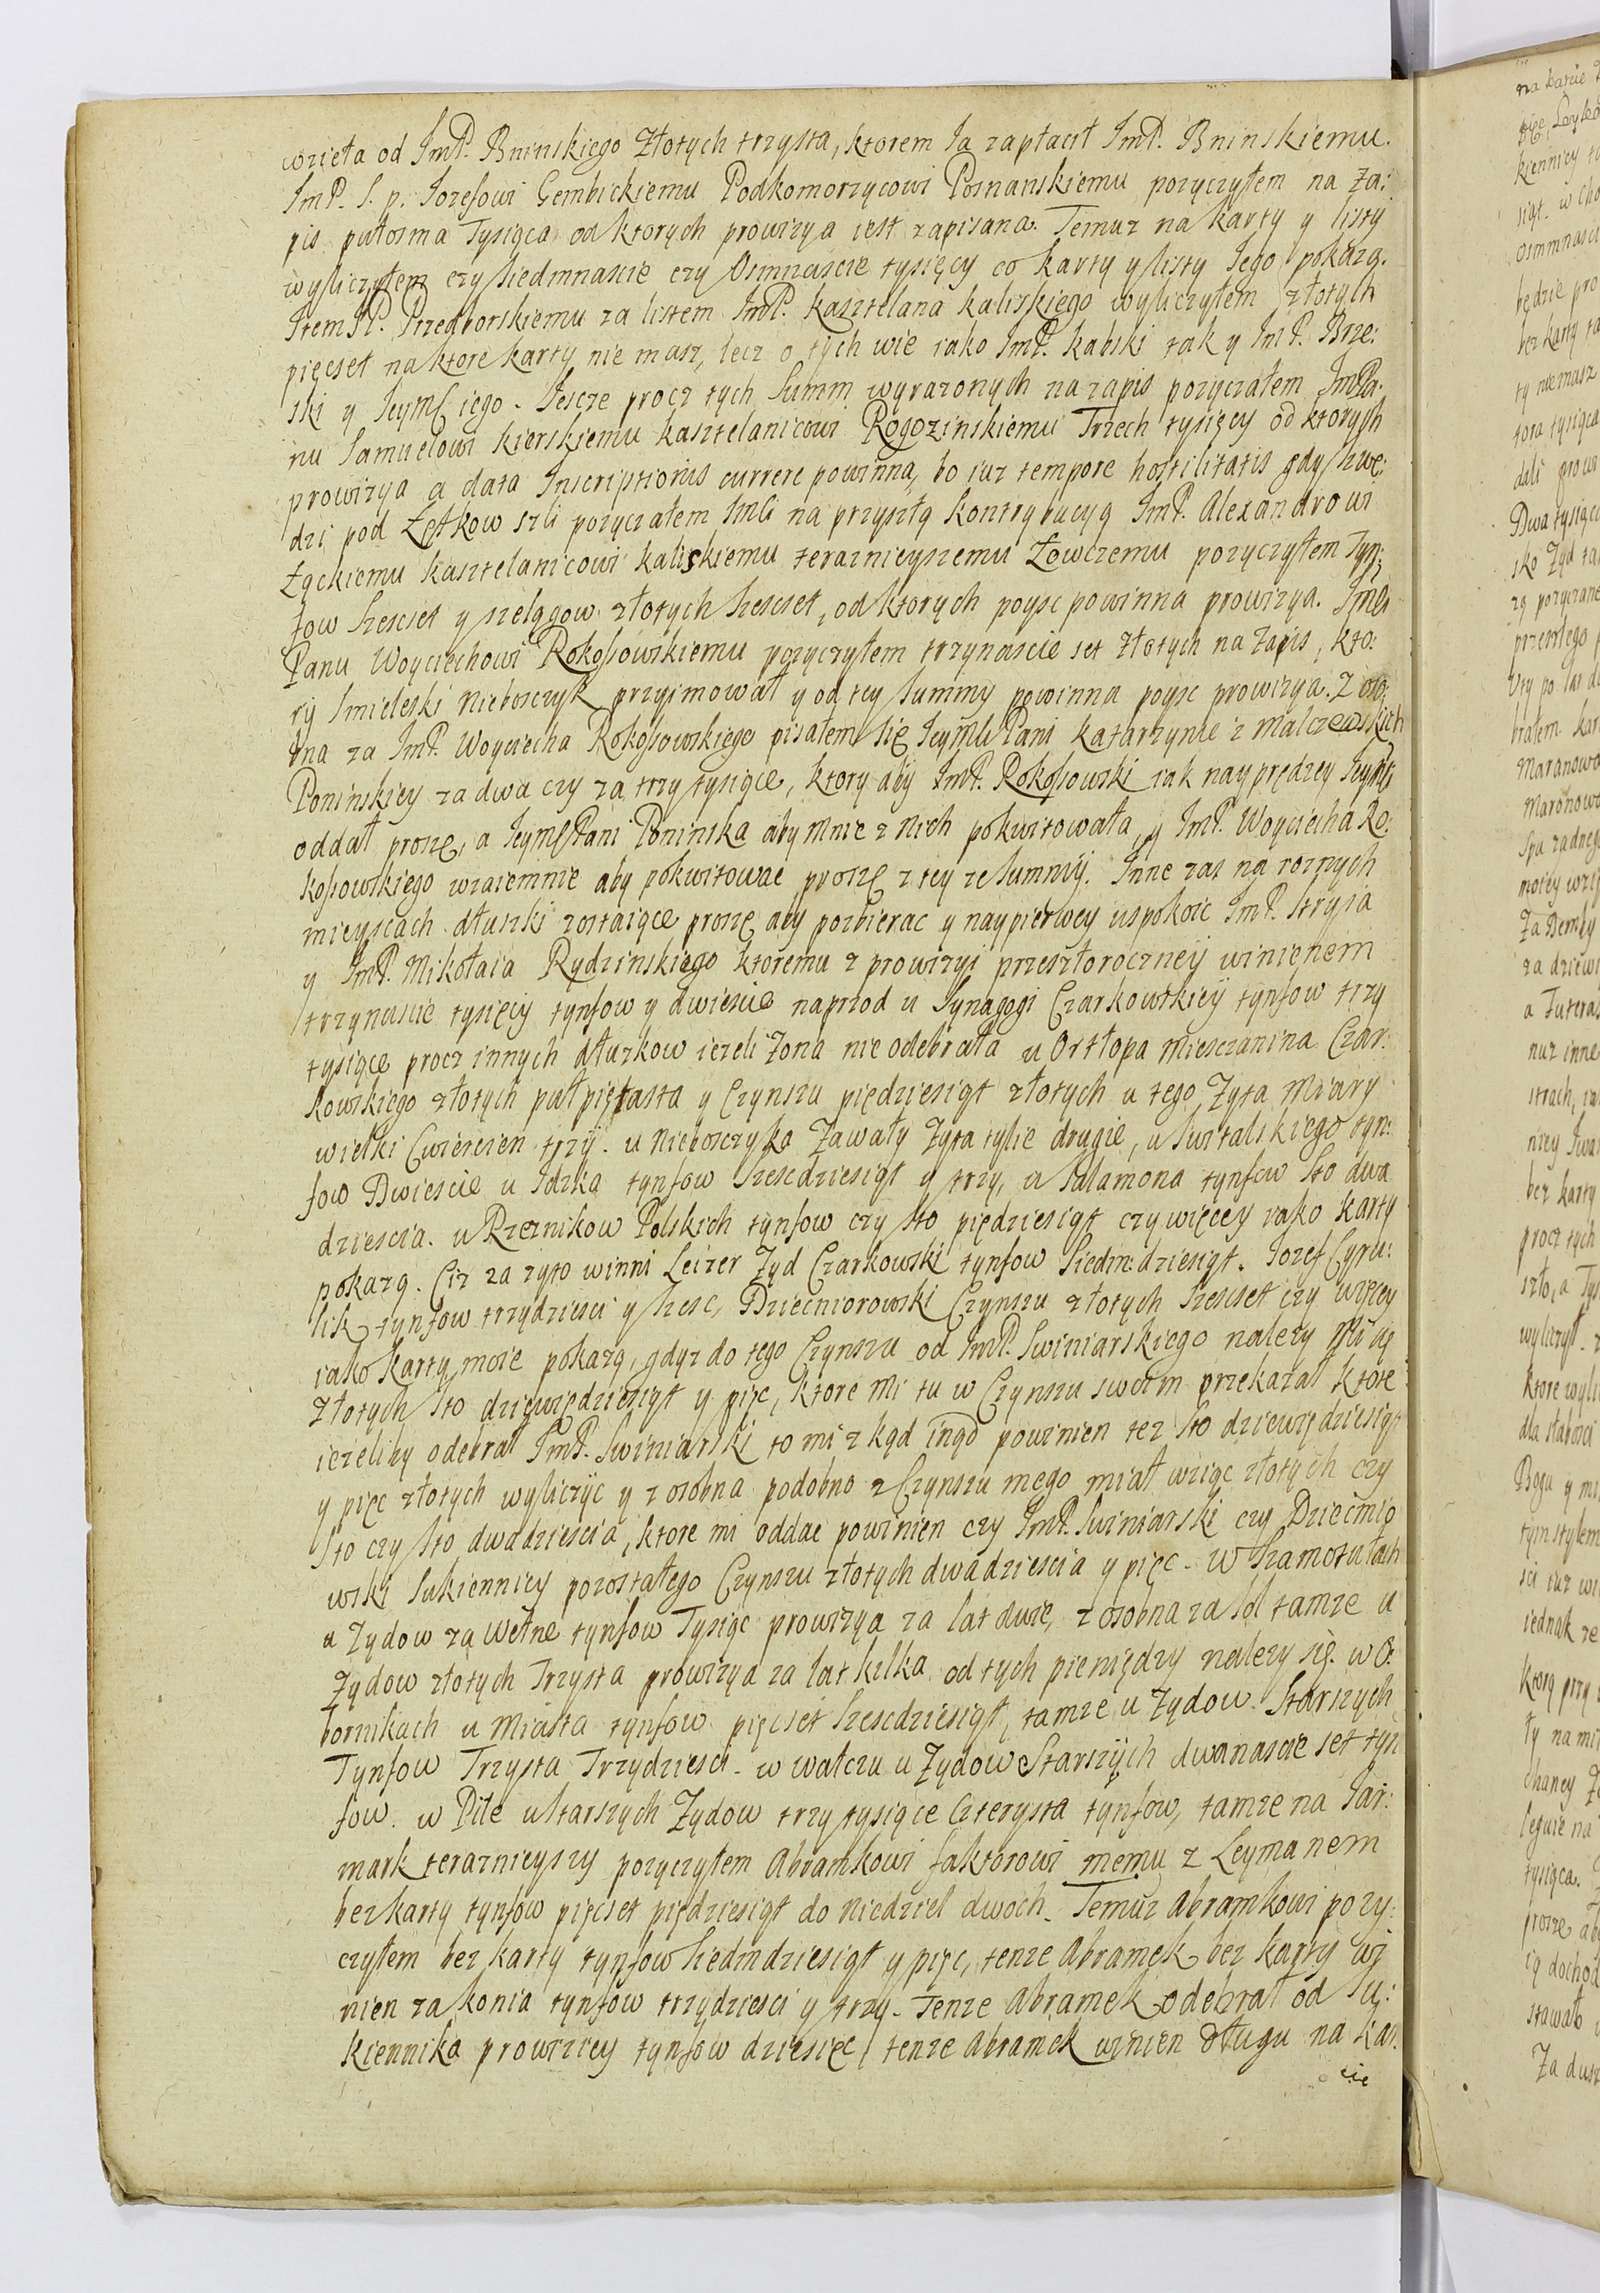 wzieła od JmP. Bninskiego Złotych trzysta, ktorem Ja zapłacił JmP. Bninskiemu.
JmP. S. p. Jozefowi Gembickiemu Podkomorzycowi Poznanskiemu pozyczyłem na Za:
pis pułosma Tysiąca od ktorych prowizya iest zapisana. Temuz na karty y listy
wyliczyłem czy siedmnascie czy Osmnascie tysięcy co karty y listy Jego pokażą.
Item JP. Przedborskiemu za listem JmP. kasztelana kaliskiego wyliczyłem złotych
pięcset na ktore karty nie masz, lecz o tych wie iako JmP. kabski tak y JmP. Brze:
ski y JeymC iego. Jescze procz tych Summ wyrazonych na zapis pozyczałem JmPa:
nu Samuelowi kierskiemu kasztelanicowi Rogozinskiemu Trzech tysięcy od ktorych
prowizya a data Inscriptionis currere powinna, bo iuz tempore hostilitatis gdy Szwe:
dzi pod Łętkow szli pozyczałem JmCi na przyszłą kontrybucyą JmP. Alexandrowi
Łąckiemu kasztelanicowi kaliskiemu teraznieyszemu Łowczemu pozyczyłem Tyn:
fow Szescset y szelągow złotych szescset, od ktorych poysc powinna prowizya. JmCi
Panu Woyciechowi Rokossowskiemu pozyczyłem trzynascie set złotych na zapis, kto:
ry Smieleski Nieboszczyk przyimował y od tey Summy powinna poysc prowizya. Z oso:
bna za JmP. Woyciecha Rokossowskiego pisałem się JeymCi Pani Katarzynie z Malczewskich
Poninskiey za dwa czy za trzy tysiące, ktory aby JmP. Rokossowski iak nayprędzey JeymCi
oddał proszę, a JeymC Pani Poninska aby mnie z nich pokwitowała, y JmP. Woyciecha Ro:
kossowskiego wzaiemnie aby pokwitowac proszę z tey ze Summy. Inne zas na roznych
mieyscach dłuszki zostaiące proszę aby pozbierac y naypierwey uspokoic JmP. Stryia
y JmP. Mikołaia Rydzinskiego ktoremu z prowizyi przeszłoroczney winienem
trzynascie tysięcy tynfow y dwiescie naprzod u Synagogi Czarkowskiey tynfow trzy
tysiące procz innych dłuzkow iezeli Zona nie odebrała u Ortłopa miesczanina Czar:
kowskiego złotych pułpiętasta y Czynszu piędziesiąt złotych u tego Zyta Miary
wielki Cwiercien trzy. u Nieboszczyka Zawały Zyta tylie drugie, u Switalskiego tyn:
fow Dwiescie u Idzka tynfow Szescdziesiąt y trzy, u Salamona tynfow Sto dwa
dziescia. u Rzeznikow Polskich tynfow czy sto piędziesiąt czy więcey iako karty
pokazą. Ciz za zyto winni Leizer Zyd Czarkowski tynfow Siedmdziesiąt. Jozef Cyru:
lik tynfow trzydziesci y szesc, Dziecniorowski Czynszu złotych szescset czy więcey
iako karty moie pokazą, gdyz do tego Czynszu od JmP. Swiniarskiego nalezy Mi się
Złotych sto dziewiędziesiąt y pięc, ktore mi tu w Czynszu swoim przekazał ktore
iezeliby odebrał JmP. Swiniarski to mi z kąd inąd powinien tez sto dziewiędziesiąt
y pięc złotych wyliczyc y z osobna podobno z Czynszu mego miał wziąc złotych czy
Sto czy sto dwadziescia, ktore mi oddac powinien czy JmP. Swiniarski czy Dziecmio
wski Sukiennicy pozostałego Czynszu złotych dwadziescia y pięc. w Szamotułach
u Zydow za Wełne tynfow Tysiąc prowizya za lat dwie, z osobna za sol tamze u
Zydow złotych Trzysta prowizya za lat kilka od tych pieniędzy nalezy się. w O:
bornikach u Miasta tynfow pięcset szescdziesiąt, tamze u Zydow Starszych
Tynfow Trzysta Trzydziesci. w Wałczu u Zydow Starszych dwanascie set tyn
fow. w Pile u Starszych Zydow trzy tysiące Czterysta tynfow, tamze na Jar:
mark teraznieyszy pozyczyłem Abramkowi faktorowi memu z Leymanem
bez karty tynfow pięcset piędziesiąt do Niedziel dwoch. Temuz Abramkowi pozy:
czyłem bez karty tynfow siedmdziesiąt y pięc, tenze Abramek bez karty wi
nien za konia tynfow trzydziesci y trzy. Tenze Abramek odebrał od Su:
kiennika prowiziey tynfow dziesięc, tenze Abramek winien długu na kar:
cie